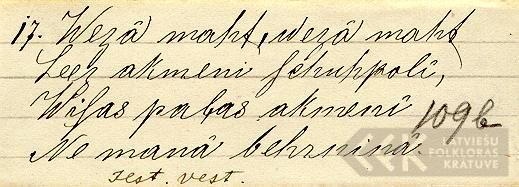 17. Wezā maht, wezā maht
Leez akmeni schuhpoli,
Wisas pabas akmenī
109b
Ne manā behrninā.
Test. vest.
LATVIEŠU
FOLKLORAS
KRĀTUVE